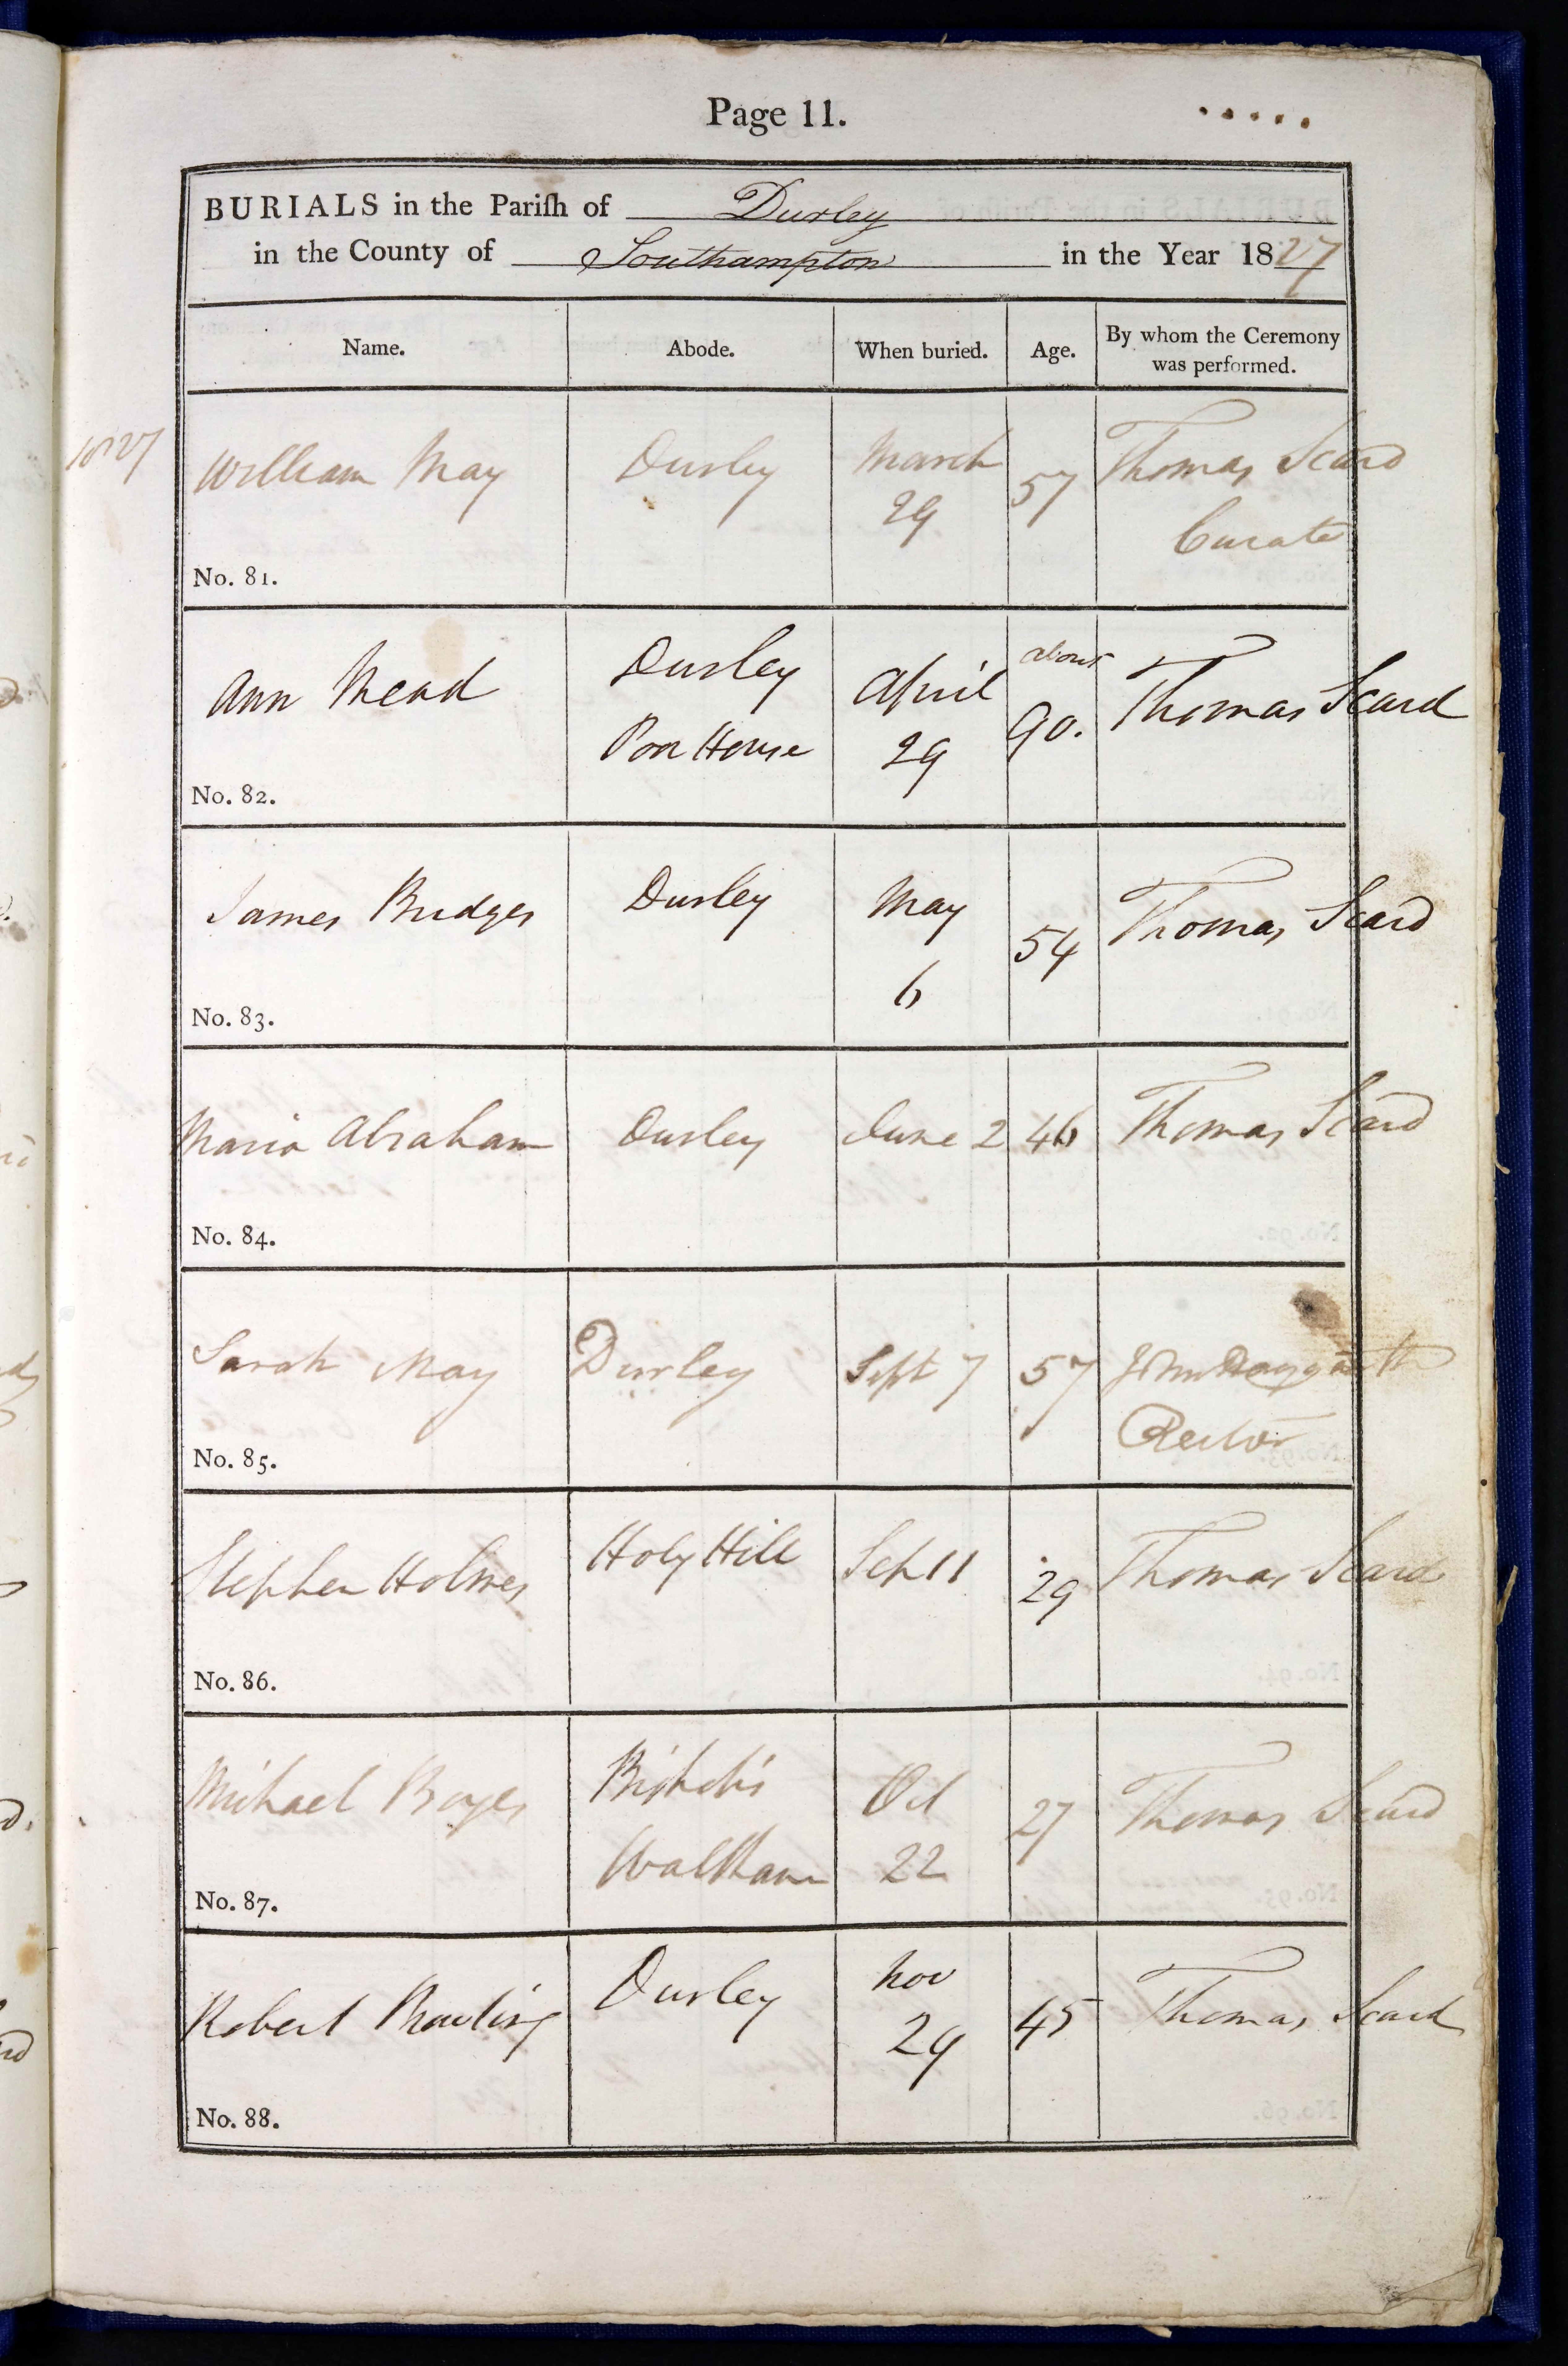 Page 11.
BURIALS in the Pariſh of Durley
in the County of Southampton in the Year 1827
Name. Abode. When buried. Age. By whom the Ceremony was performed.
1827
William May Durley March 29 57 Thomas Scard Curate
No. 81.
Ann Mead Durley Poor House April 29 about 90. Thomas Scard
No. 82.
James Bridges Durley May 6 54 Thomas Scard
No. 83.
Maria Abraham Durley June 2 46 Thomas Scard
No. 84.
Sarah May Durley Sept 7 57 John Haygarth Rector
No. 85.
Stephen Holmes Holy Hill Sep 11 29 Thomas Scard
No. 86.
Michael Boyes Bishop's Waltham Oct 22 27 Thomas Scard
No. 87.
Robert Durley Nov 29 45 Thomas Scard
No. 88.